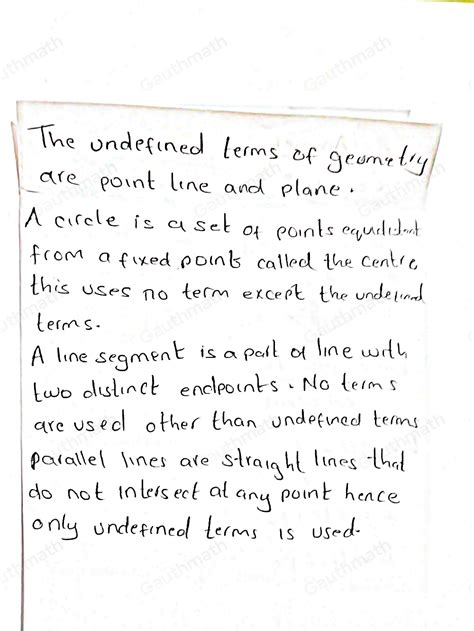 The undefined terms of geometry
are point line and plane.
A circle is a set of points equidistant
from a fixed points called the centre
this uses no term except the undefined
terms.
A line segment is a part of line with
two distinct endpoints. No terms
are used other than undefined terms
parallel lines are straight lines that
do not intersect at any point hence
only undefined terms is used.